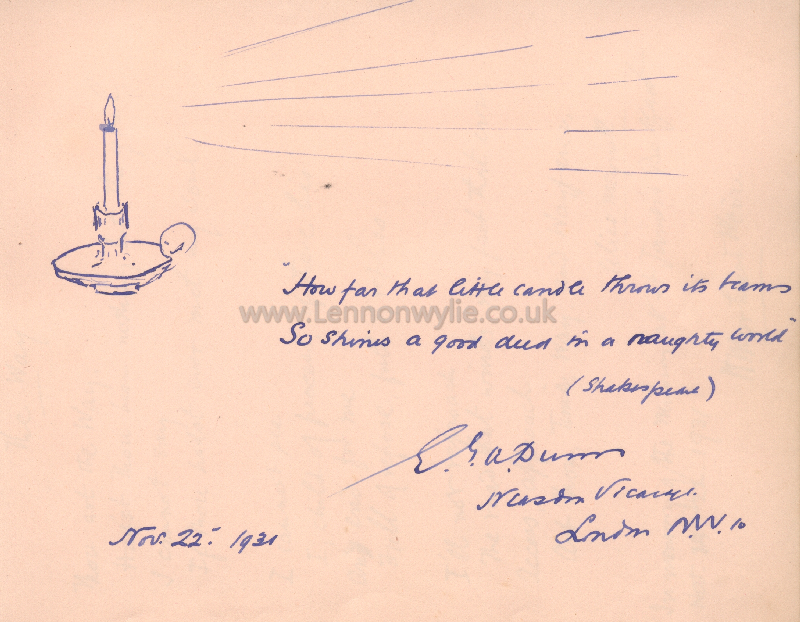 "How far that little candle throws its beams
www.Lennonwylie.co.uk
So shines a good deed in a naughty world"
(Shakespeare)
E. G. A. Dunn
Neasden Vicarage.
London N.W. 10
Nov. 22. 1931